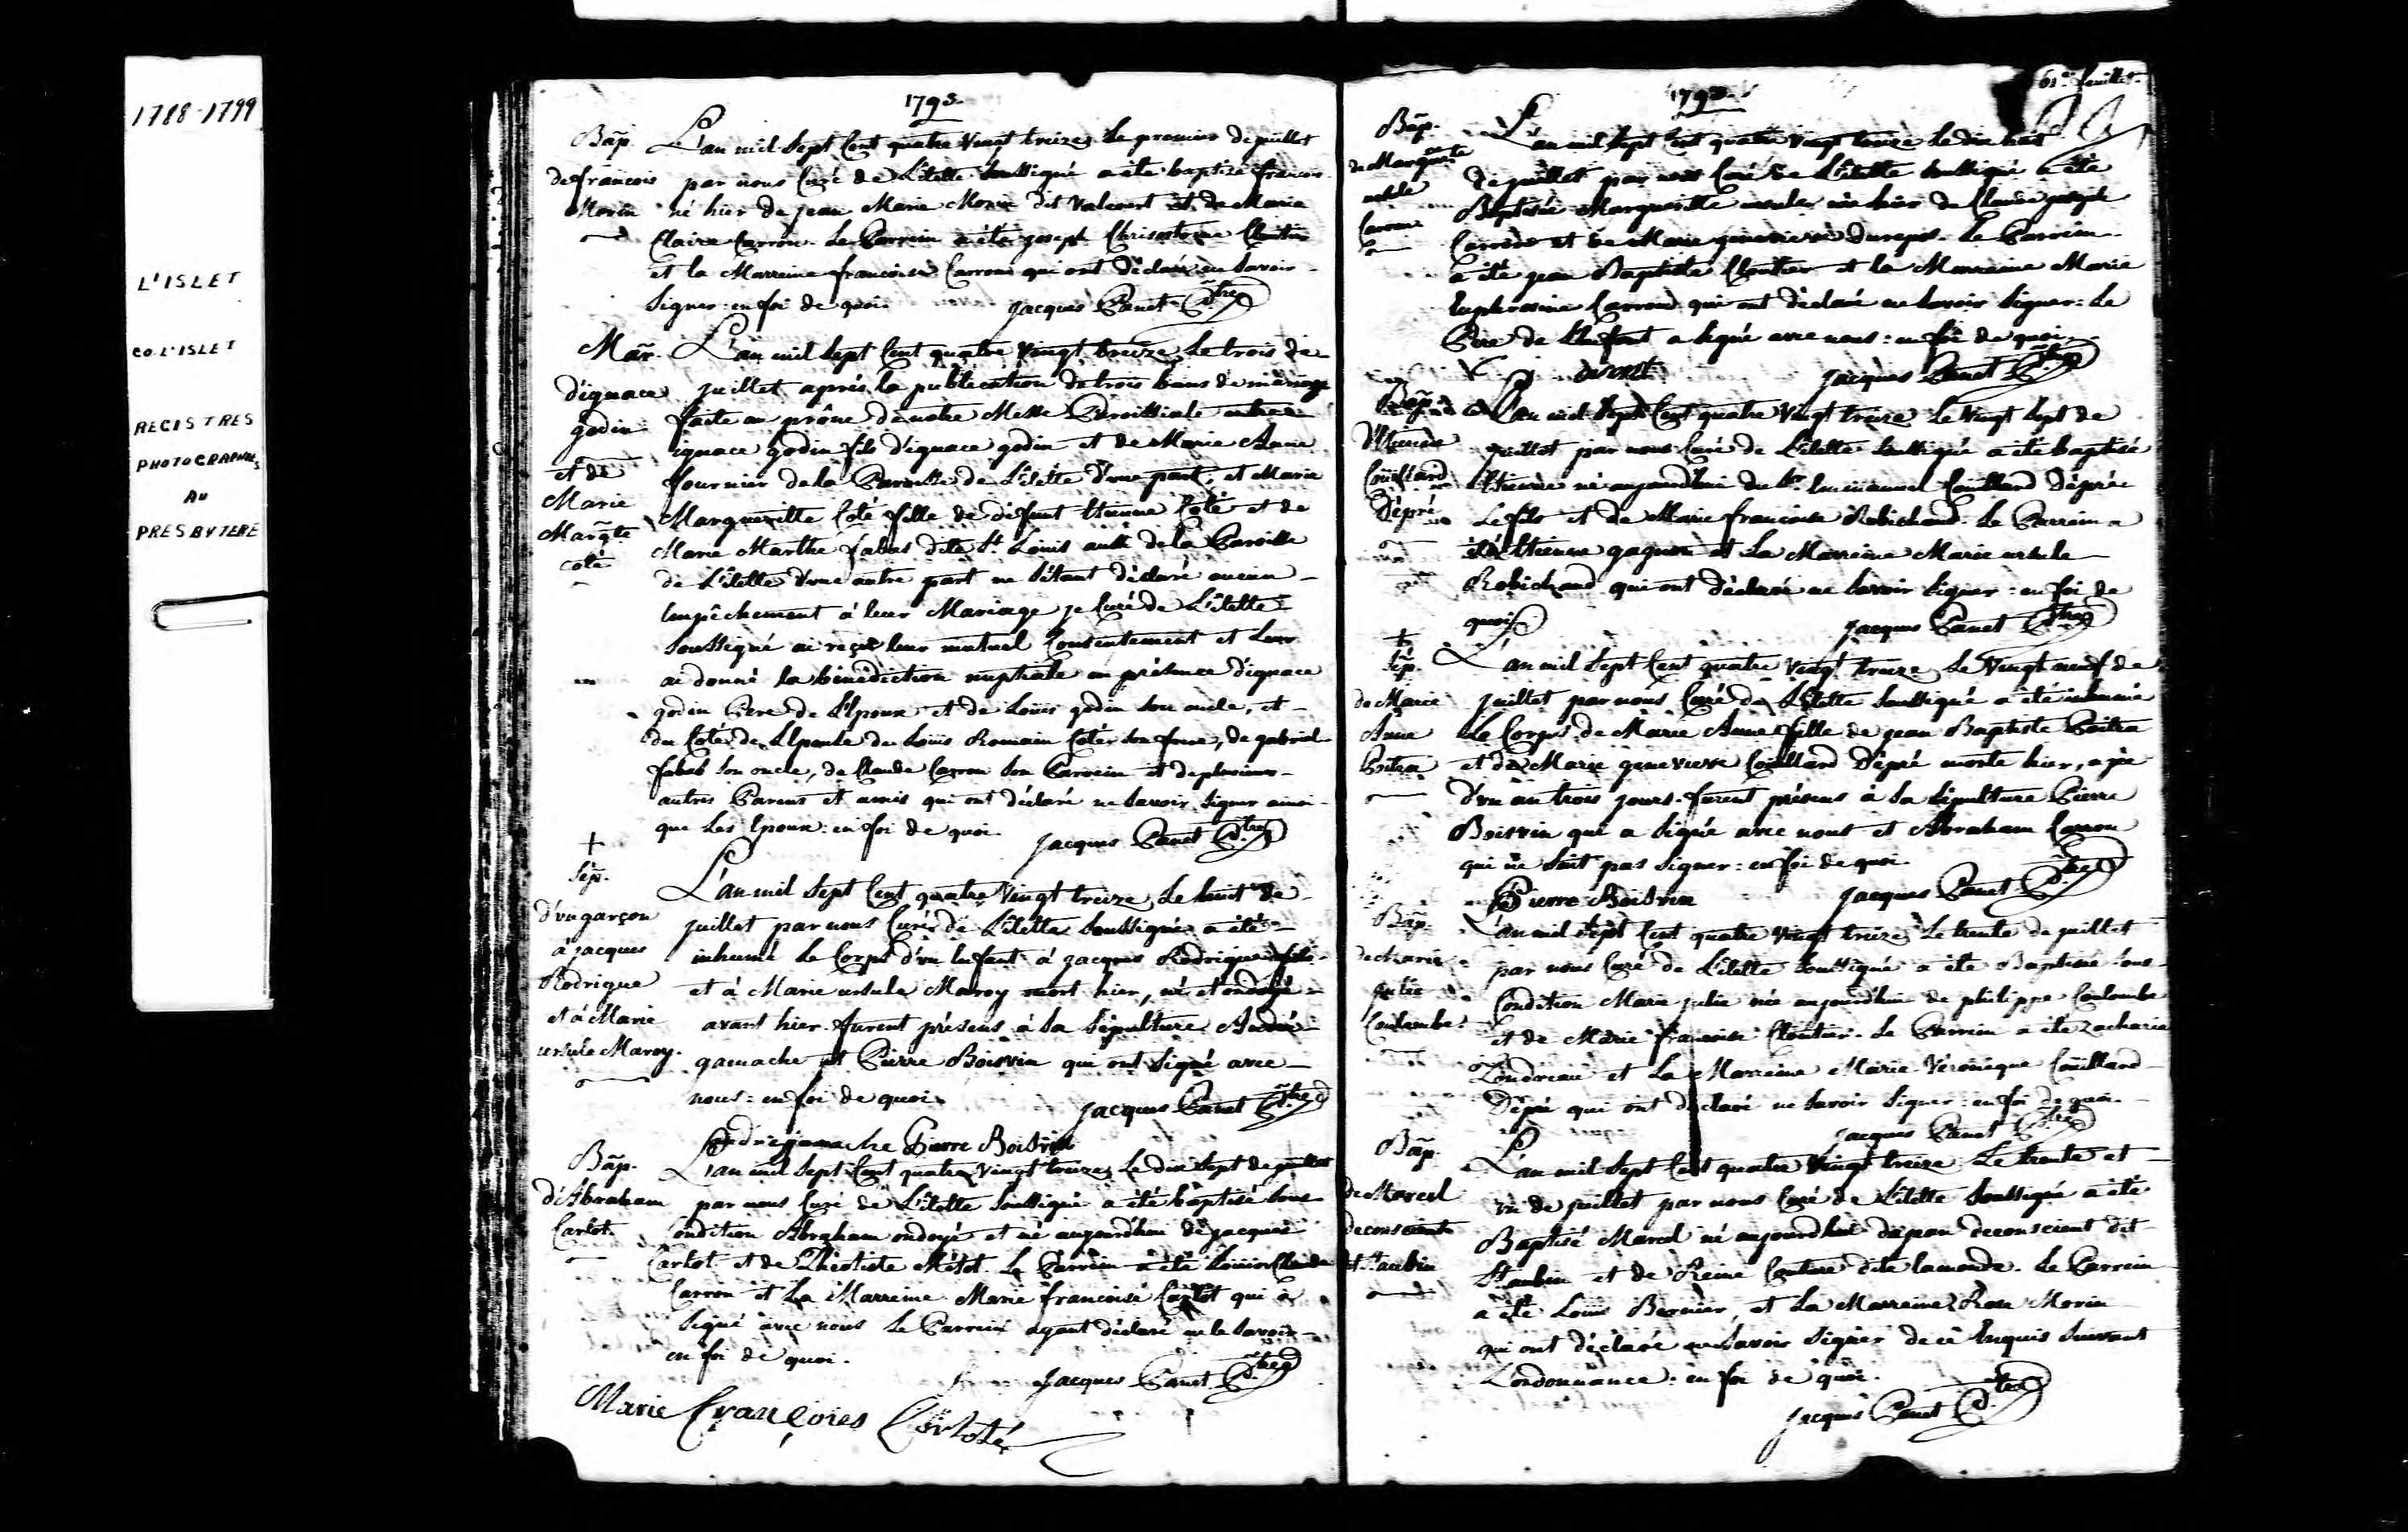 1788-1799
L'ISLET
CO. L'ISLET
REGISTRES
PHOTOGRAPHIES
AU
PRESBYTERE
1793.
Bap.
de francois
Morin
L'an mil Sept Cent quatre Vingt treize Le premier de juillet
par nous Curé de L'ilette Soussigné a été baptisé francois
né hier de jean Marie Morin dit Valcourt et de Marie
Claire Carron. Le Parrein a été joseph Chrisostome Cloutier
et la Marreine francoise Carron qui ont déclaré ne Savoir
Signer: en foi de quoi.
jacques Panet Ptre
Mar.
d'ignace
godin
et de
Marie
Margte
coté
L'an mil Sept Cent quatre Vingt treize, Le trois de
juillet aprés la publication de trois bans de mariage
faite au prône de notre Messe Paroissiale entre
ignace godin fils d'ignace godin et de Marie Anne
fournier de la Paroisse de L'ilette d'une part; et Marie
Margueritte Coté fille de défunt Etienne Coté et de
Marie Marthe fabas dite St. Louis aussi de la Paroisse
de L'ilette d'une autre part ne S'étant déclaré aucun
Empêchement à leur Mariage je Curé de L'ilette
Soussigné ai reçu leur mutuel Consentement et Leur
ai donné la bénédiction nuptiale en présence d'ignace
godin Pere de L'Epoux et de Louis godin Son oncle, et
du Coté de L'Epouse de Louis Romain Coté Son frere, de gabriel
fabas Son oncle, de Claude Carron Son Parrein et de plusieurs
autres Parens et amis qui ont déclaré ne Savoir Signer ainsi
que Les Epoux: en foi de quoi.
jacques Panet Ptre
+
Sép.
d'vn garçon
à jacques
Rodrigue
et à Marie
ursule Maroy.
L'an mil Sept Cent quatre Vingt treize, Le huit de
juillet par nous Curé de L'ilette Soussigné a été
inhumé Le Corps d'vn Enfant à jacques Rodrigue fils
et à Marie ursule Maroy mort hier, né et ondoyé
avant hier. furent présens à Sa Sépulture André
gamache et Pierre Boisvin qui ont Signé avec
nous: en foi de quoi.
jacques Panet Ptre
Andre gamache Pierre Boisvin
Bap.
d'Abraham
Carlot.
L'an mil Sept Cent quatre Vingt treize, Le dix Sept de juillet
par nous Curé de L'ilette Soussigné a été baptisé Sous
Condition Abraham ondoyé et né aujourd'hui de jacques
Carlot et de Théotiste Métot. Le Parrein a été Louis Claude
Carron et La Marreine Marie francoise Carlot qui a
Signé avec nous Le Parrein ayant déclaré ne le Savoir
en foi de quoi.
jacques Panet Ptre
Marie Françoies
1793.
61e. feuillet.
Bap.
de Marguerite
ursule
Carron
L'an mil Sept Cent quatre Vingt treize Le dix huit
de juillet par nous Curé de L'ilette Soussigné a été
Baptisée Marguerite ursule née hier de Claude joseph
Carron et de Marie genevieve Durepos. Le Parrein
a été jean Baptiste Cloutier et la Marreine Marie
Euphrosine Carron qui ont déclaré ne Savoir Signer: Le
Pere de L'Enfant a Signé avec nous: en foi de quoi.
jacques Panet Ptre
Bap.
d'Etienne
Coüillard
Dépré
L'an mil Sept Cent quatre Vingt treize Le Vingt Sept de
juillet par nous Curé de L'ilette Soussigné a été baptisé
Etienne né aujourd'hui du Sr. Emmanuel Coüillard Dépré
Le fils et de Marie francoise Robichaud. Le Parrein a
été Etienne gagnon et La Marreine Marie ursule
Robichaud qui ont déclaré ne Savoir Signer: en foi de
quoi
jacques Panet Ptre
+
Sép.
de Marie
Anne
Boitra
L'an mil Sept Cent quatre Vingt treize, Le Vingt neuf de
juillet par nous Curé de L'ilette Soussigné a été inhumé
Le Corps de Marie Anne fille de jean Baptiste Boitra
et de Marie genevieve Coüillard Dépré morte hier, agée
d'vn an trois jours. furent présens à Sa Sépulture Pierre
Boisvin qui a Signé avec nous et Abraham Carron
qui ne Sait pas Signer: en foi de quoi.
Pierre Boisvin
jacques Panet Ptre
Bap.
de Marie
julie
Coulombe.
L'an mil Sept Cent quatre Vingt treize, Le trente de juillet
par nous Curé de L'ilette Soussigné a été Baptisée Sous
Condition Marie julie née aujourd'hui de philippe Coulombe
et de Marie francoise Cloutier. Le Parrein a été Zacharie
et La Marreine Marie Véronique Coüillard
Dépré qui ont déclaré ne Savoir Signer: en foi de quoi.
jacques Panet Ptre
Bap.
de Marcel
deconsciant
dit St. aubin
L'an mil Sept Cent quatre Vingt treize, Le trente et
vn de juillet par nous Curé de L'ilette Soussigné a été
Baptisé Marcel né aujourd'hui de jean deconsciant dit
St. aubin et de Reine Couture dite lamonde. Le Parrein
a été Louis Bernier, et La Marreine Rose Morin
qui ont déclaré ne Savoir Signer de ce Enquis Suivant
L'ordonnance: en foi de quoi.
jacques Panet Ptre